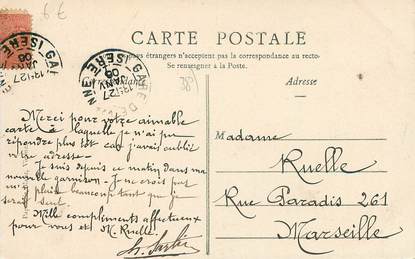 CARTE POSTALE
pays étrangers n'acceptent pas la correspondance au recto.
Se renseigner à la Poste.
Adresse
GARE
ISERE
13 27
JANV
06
Merci pour votre aimable
carte à laquelle je n'ai pu
répondre plus tôt car j'avais oublié
votre adresse.
Je suis depuis ce matin dans ma
nouvelle garnison. Je ne crois pas
m'y plaire beaucoup tant que je
Mille compliments affectueux
pour vous et M. Ruelle.
Madame
Ruelle
Rue Paradis 261
Marseille